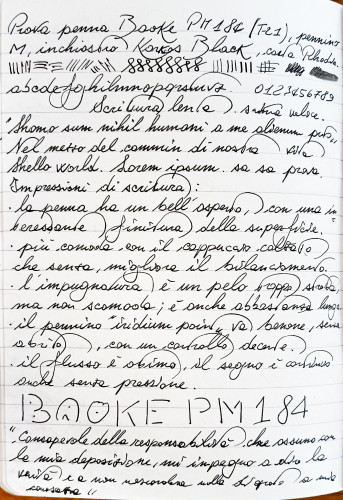 Prova penna Baoke PM184 (Tr1), pennino
M, inchiostro Kaikos Black, carta Rhodia.
abcdefghilmnopqrstuvz 0123456789
Scrittura lenta. Scrittura veloce.
"Shomo sum nihil humani a me alienum puto"
Nel mezzo del cammin di nostra vita
Shello world. Lorem ipsum. sa sa prova.
Impressioni di scrittura:
· la penna ha un bell'aspetto, con una in-
teressante finitura della superficie.
· più comoda con il cappuccio calzato
che senza, migliora il bilanciamento.
· l'impugnatura è un pelo troppo stretta,
ma non scomoda; è anche abbastanza lunga
· il pennino "iridium point" va benone, senza
attrito, con un controllo decente.
· il flusso è ottimo, il segno è continuo
anche senza pressione.
BAOKE PM184
"Consapevole della responsabilità che assumo con
la mia deposizione, mi impegno a dire la
verità e a non nascondere nulla di quanto a mia
conoscenza"